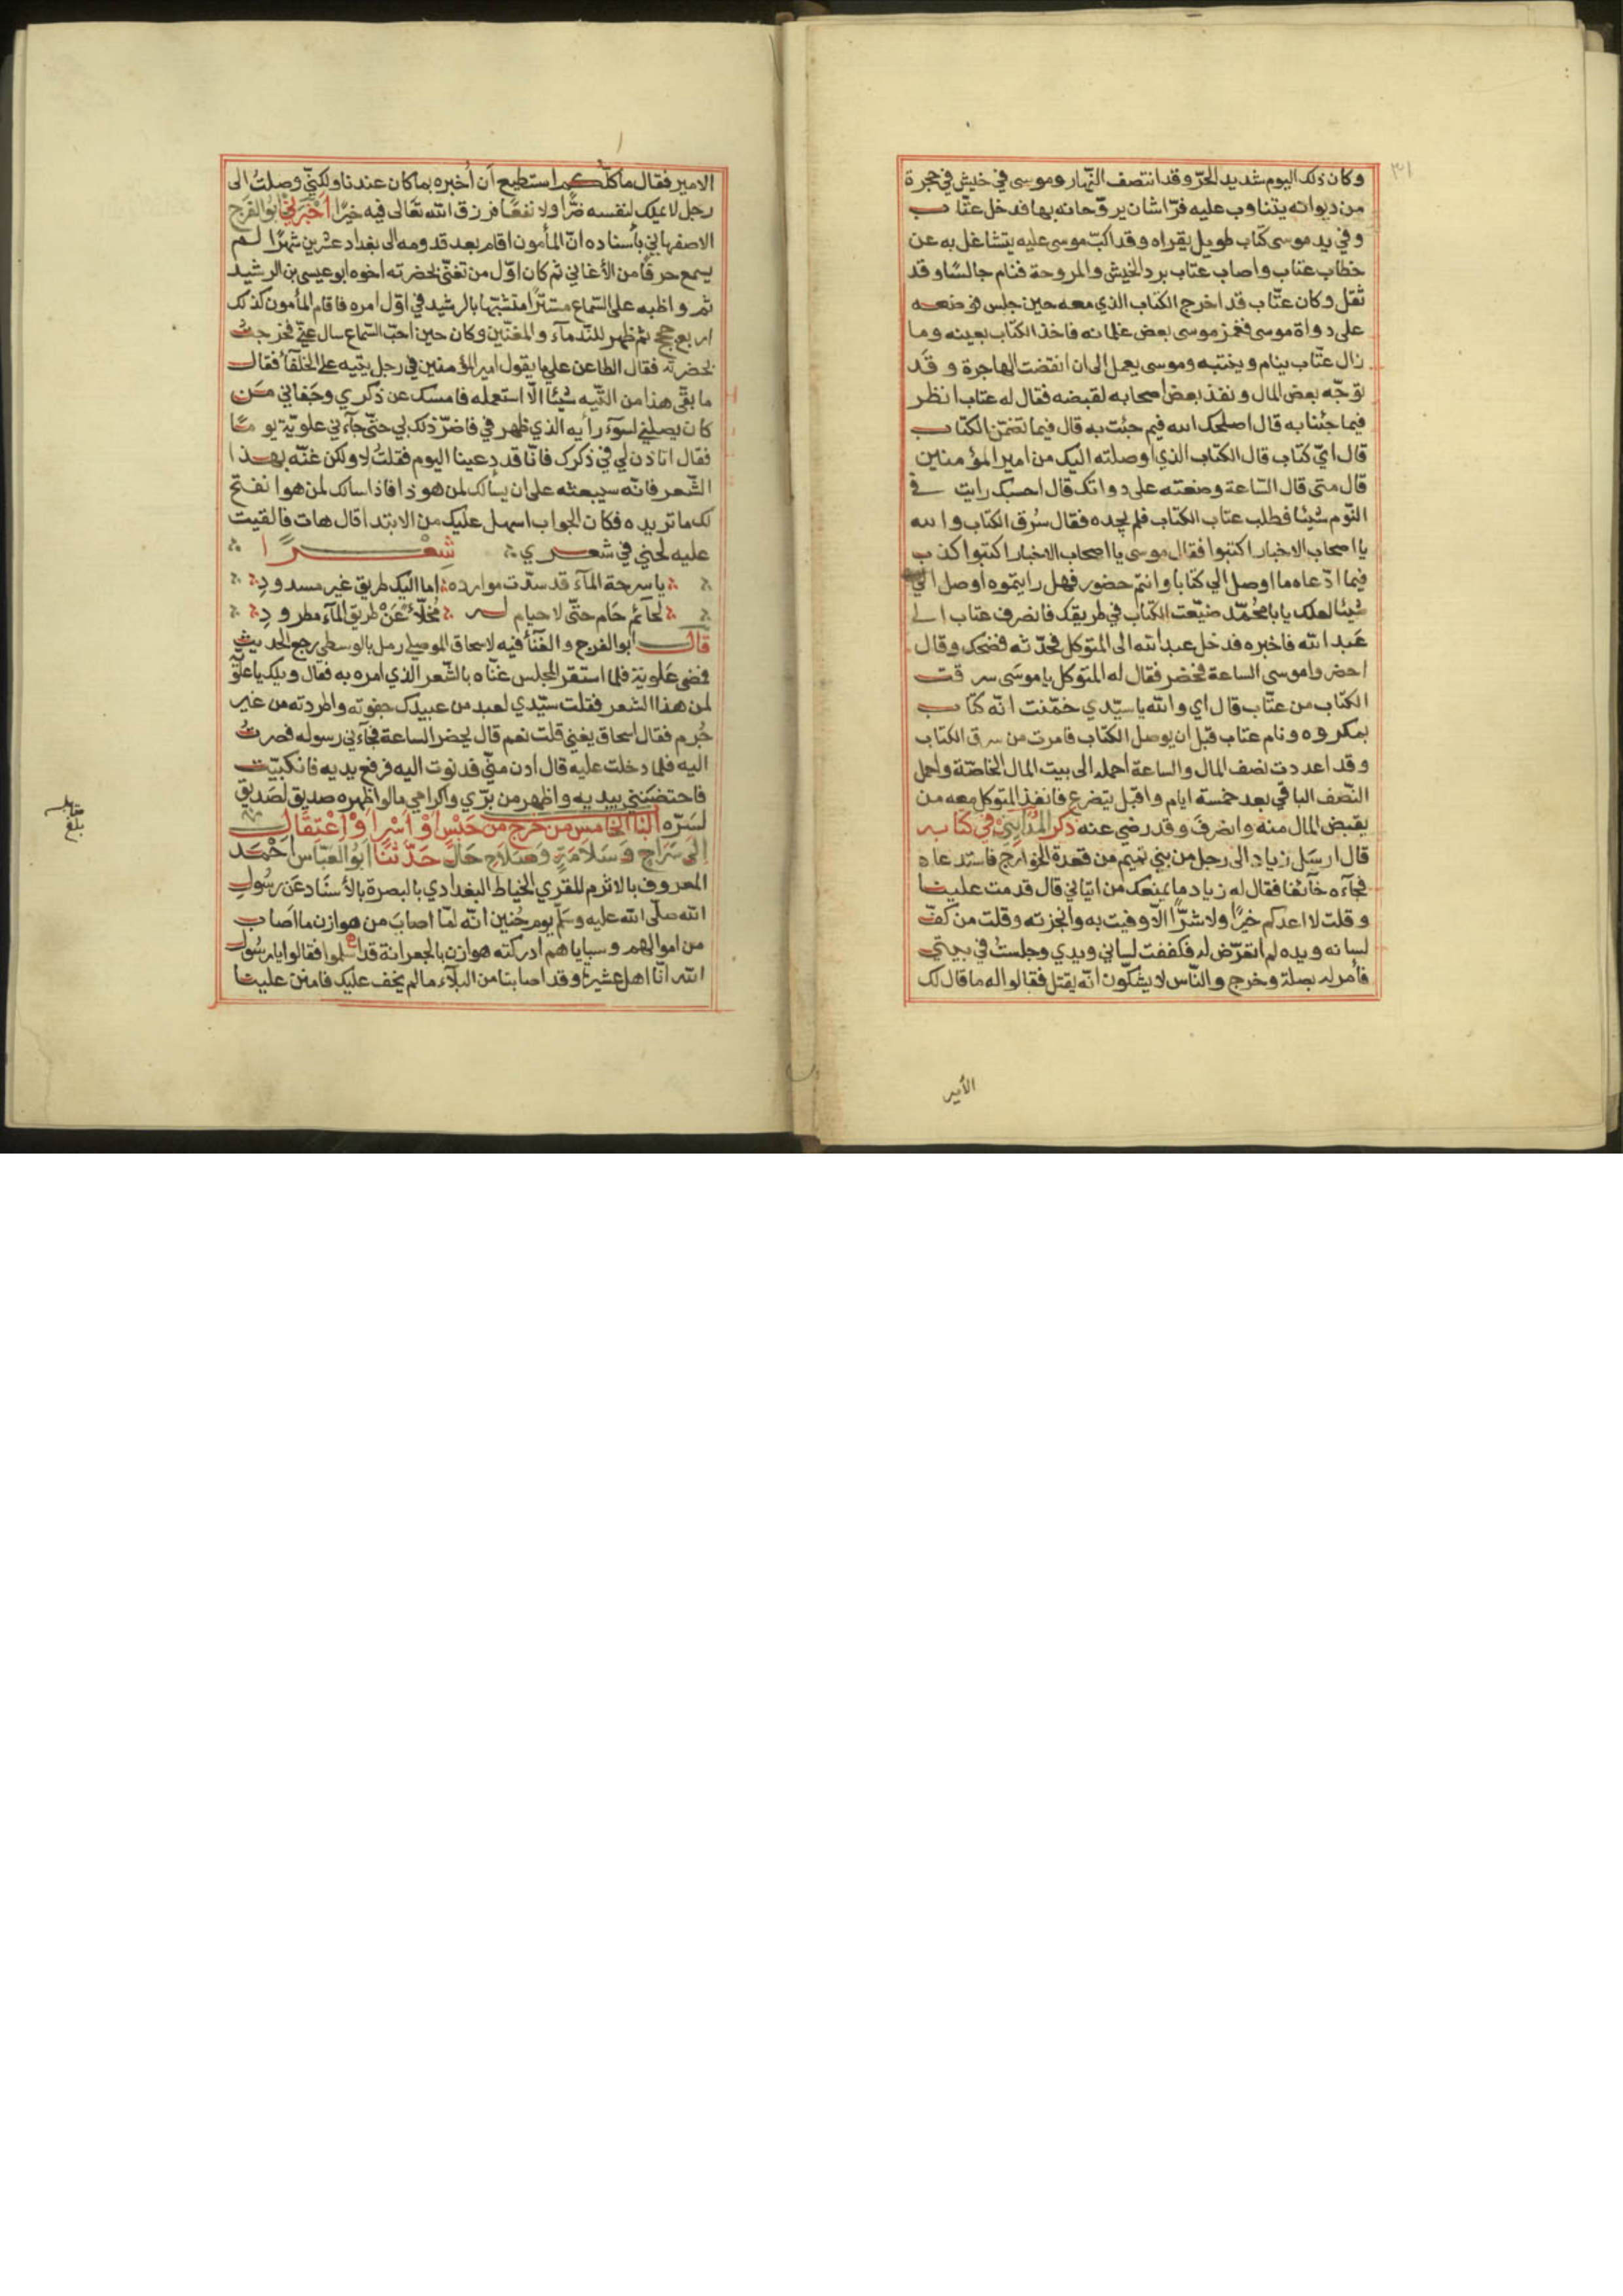 ٣١
وكان ذلك اليوم شديد الحرّ وقد انتصف النّهار وموسى في خيش في حجرة
من ديوانه يتناوب عليه فرّاشان يروّحانه بها فدخل عتّاب
وفي يد موسى كتاب طويل يقراه وقد اكبّ موسى عليه يتشاغل به عن
خطاب عتاب واصاب عتاب برد الخيش والمروحة فنام جالسًا وقد
ثقل وكان عتّاب قد اخرج الكتاب الذي معه حين جلس فوضعه
على دواة موسى فغمز موسى بعض غلمانه فاخذ الكتاب بعينه وما
زال عتّاب ينام وينتبه وموسى يعمل إلى ان انقضت الهاجرة وقد
توجّه بعض المال ونفذ بعض اصحابه لقبضه فقال له عتاب انظر
فيما جئنا به قال اصلحك الله فيم جئت به قال فيما تضمّن الكتاب
قال ايّ كتاب قال الكتاب الذي اوصلته اليك من امير المؤمنين
قال متى قال السّاعة وضعته على دواتك قال احسبك رايت في
النّوم شيئا فطلب عتاب الكتاب فلم يجده فقال سُرق الكتاب والله
يا اصحاب الاخبار اكتبوا فقال موسى يا اصحاب الاخبار اكتبوا كذب
فيما ادّعاه ما اوصل الي كتابا وانتم حضور فهل رايتموه اوصل اليّ
شيئا لعلك يابا محمّد ضيّعت الكتاب في طريقك فانصرف عتاب الى
عبد الله فاخبره فدخل عبد الله الى المتوكل فحدّثه فضحك وقال
احضروا موسى الساعة فحضر فقال له المتوكل يا موسى سرقت
الكتاب من عتّاب قال اي والله يا سيّدي خمّنت انّه كتاب
بمكروه ونام عتاب قبل أن يوصل الكتاب فامرت من سرق الكتاب
وقد اعددت نصف المال والساعة احمله الى بيت المال الخاصّة واحمل
النّصف الباقي بعد خمسة ايام واقبل يتضرع فانفذ المتوكل معه من
يقبض المال منه وانصرف وقد رضي عنه ذكر المدايني في كتابه
قال ارسل زياد الى رجل من بني تميم من قعدة الخوارج فاستدعاه
فجآءه خآئفا فقال له زياد ما يمنعك من اتياني قال قدمت علينا
وقلت لا اعدكم خيرًا ولا شرّا الّا وفيت به وانجزته وقلت من كفّ
لسانه ويده لم اتعرّض له فكففت لساني ويدي وجلستُ في بيتي
فأمر له بصلة وخرج والنّاس لا يشكّون انّه يقتل فقالوا له ما قال لك
الأمير
الامير فقال ما كلّكم استطيع أن أخبره بما كان عندنا ولكنّي وصلتُ الى
رجل لا يملك لنفسه ضرًّا ولا نفعًا فرزق الله تعالى فيه خيرًا أخبرني ابو الفرج
الاصفهاني بأسناده انّ المأمون اقام بعد قدومه الى بغداد عشرين شهرًا لم
يسمع حرفًا من الأغاني ثم كان اوّل من تغنّى بحضرته اخوه ابو عيسى بن الرشيد
ثم واظبه على السّماع مستترًا متشبّها بالرشيد في اوّل امره فاقام المأمون كذلك
اربع حجج ثم ظهر للنّدمآء والمغنّين وكان حين احبّ السّماع سال عنّي فخرجتُ
بحضرته فقال الطاعن علي ما يقول امير المؤمنين في رجل يتيه على الخلفآء فقال
ما بقّى هذا من التّيه شيئا الّا استعمله فامسك عن ذكري وجفاني من
كان يصلني لسوء رأيه الذي ظهر في فاضرّ ذلك بي حتّى جآءني علويّة يومًا
فقال اتاذن لي في ذكرك فانّا قد دعينا اليوم فقلتُ لا ولكن غنّه بهذا
الشّعر فانّه سيبعثه على ان يسألك لمن هو ذا فاذا سالك لمن هو انفتح
لك ما تريده فكان الجواب اسهل عليك من الابتدا قال هات فالقيت
عليه لحني في شعري شعرًا
يا سرحة المآء قد سدّت موارده اما اليك طريق غير مسدود
لحائم حام حتّى لا حيام له محلّأ عن طريق المآء مطرود
قال ابو الفرج والغنآ فيه لاسحاق الموصلي رمل بالوسطى رجع الحديث
فمضى علوية فلما استقر المجلس غنّاه بالشّعر الذي امره به فقال ويلك يا علوّية
لمن هذا الشعر فقلت سيّدي لعبد من عبيدك جفوته واطردته من غير
جُرم فقال اسحاق يعني قلت نعم قال يحضر الساعة فجآءني رسوله فصرتُ
اليه فلما دخلت عليه قال ادن منّي فدنوت اليه فرفع يديه فانكببت
فاحتضنني بيديه واظهر من برّي واكرامي ما لو اظهره صديق لصديق
لسرّه الباب الخامس من خرج من حبس أو أسر أو اعتقال
إلى سراح وسلامة وصلاح حال حدّثنا ابو العبّاس احمد
المعروف بالاثرم المقري الخياط البغدادي بالبصرة بالأسناد عن رسول
الله صلّى الله عليه وسلّم يوم حُنين انّه لمّا اصاب من هوازن ما اصاب
من اموالهم وسباياهم ادركته هوازن بالجعرانة قد اسلموا فقالوا يا رسول
الله انّا اهل عشيرة وقد اصابنا من البلآء ما لم يخف عليك فامنن علينا
بلغ
مقابلة